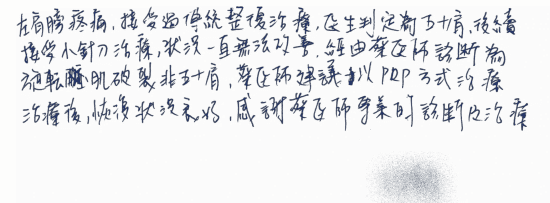 左肩膀疼痛，接受過傳統整復治療，医生判定為五十肩，後續
接受小針刀治療，狀況一直無法改善，經由蔡医師診斷為
旋轉肌破裂非五十肩，蔡医師建議以PRP方式治療
治療後，恢復狀況良好，感謝蔡医師專業的診斷及治療